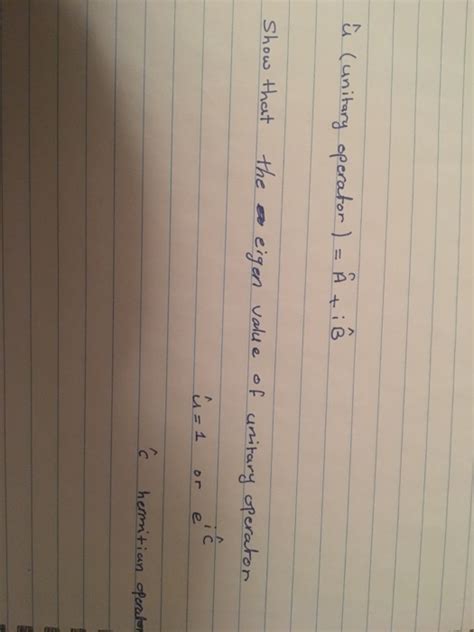 û (unitary operator) = Â + i B̂
Show that the eigen value of unitary operator
û = 1 or e^{iĉ}
ĉ hermitian operator